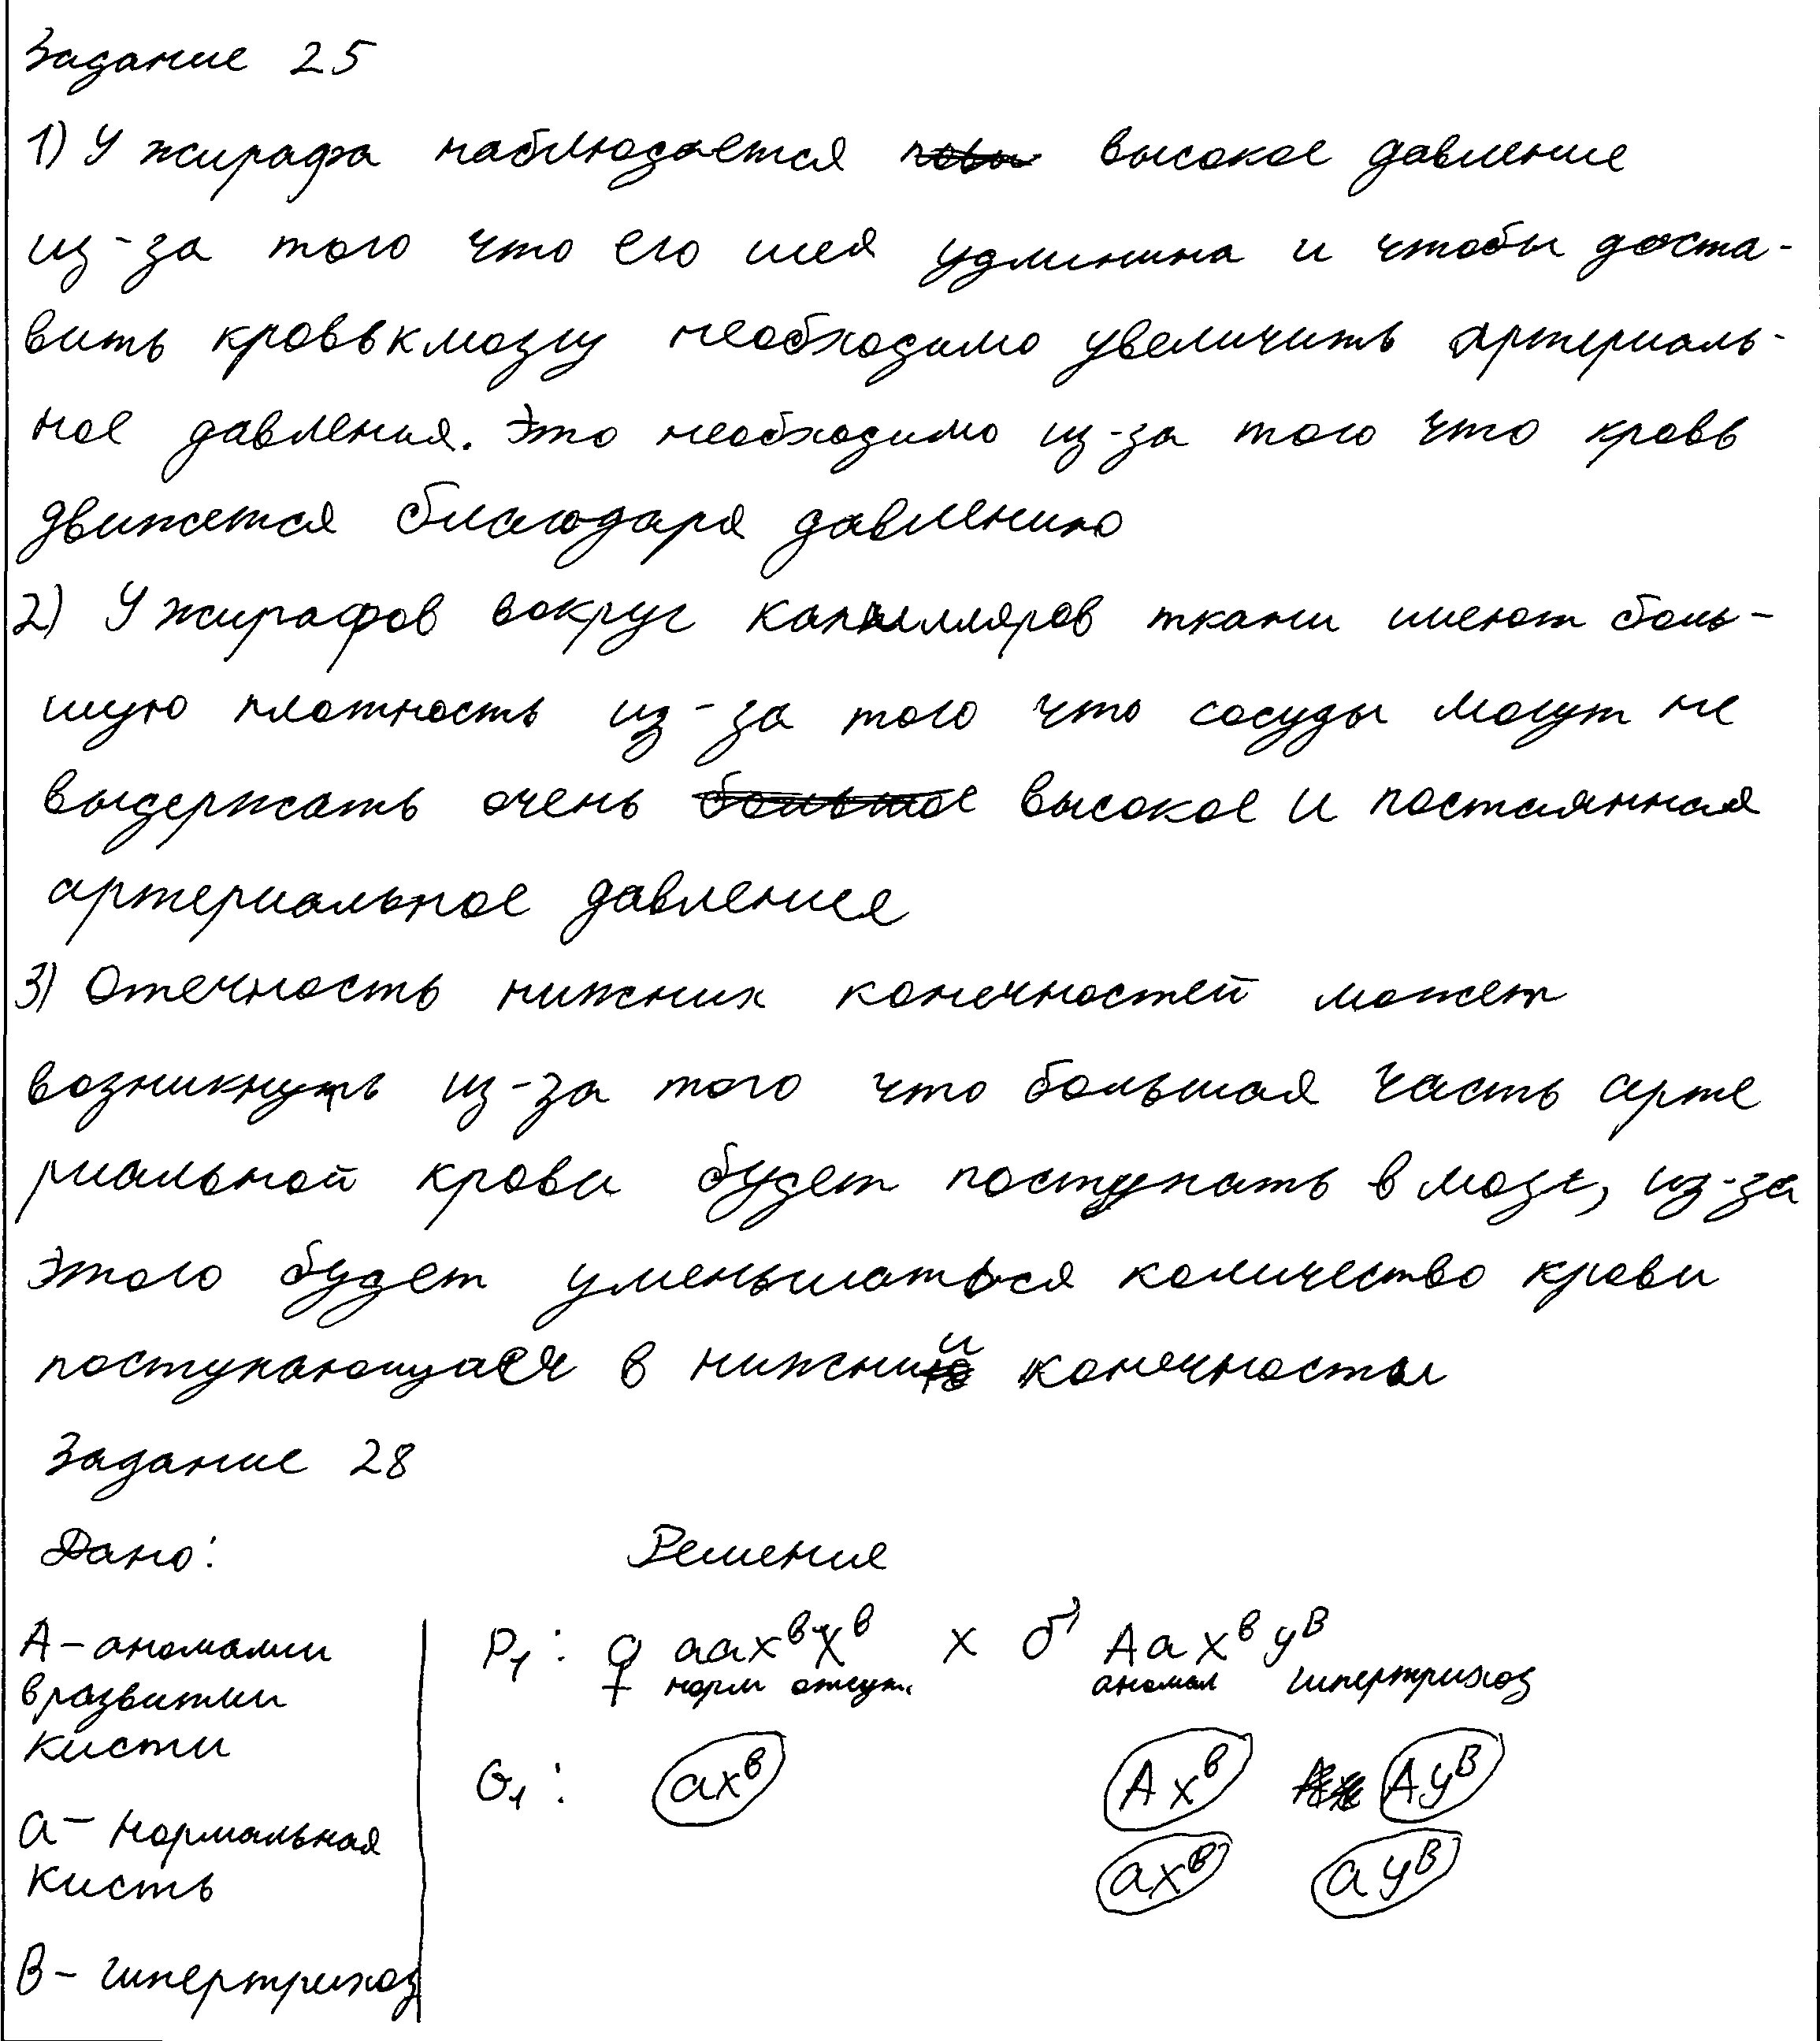 Задание 25
1) У жирафа наблюдается высокое давление
из-за того что его шея удминина и чтобы доста-
вить кровь к мозгу необходимо увеличить артериаль-
ное давления. Это необходимо из-за того что кровь
движется благодаря давлению
2) У жирафов вокруг капилляров ткани имеют боль-
шую плотность из-за того что сосуды могут не
выдержать очень большое высокое и постаянная
артериальное давления
3) Отечность нижних конечностей может
возникнуть из-за того что большая часть арте
риальной крови будет поступать в мозг, из-за
этого будет уменьшаться количество крови
поступающаея в нижнии конечносты
Задание 28
Дано: Решение
А – аномалии
в развитии
кисти
а – нормальная
кисть
В – гипертрихоз
P₁: ♀ aaxᵇxᵇ x ♂ Aaxᵇyᴮ
норм отсут. аномал гипертрихоз
G₁: axᵇ Axᵇ Ayᴮ
axᵇ ayᴮ